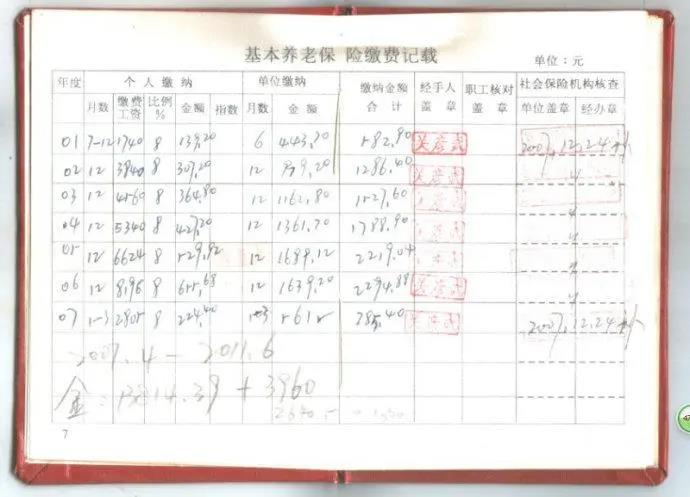 基本养老保 险缴费记载
单位：元
年度 个人缴纳 单位缴纳 缴纳金额合计 经手人盖章 职工核对盖章 社会保险机构核查
月数 缴费工资 比例% 金额 指数 月数 金额 单位盖章 经办章
01 7-12 1740 8 139.20 6 443.70 582.90 2007.12.24补
02 12 3840 8 307.20 12 979.20 1286.40 〃
03 12 4560 8 364.80 12 1162.80 1527.60 〃
04 12 5340 8 427.20 12 1361.70 1788.90 〃
05 12 6624 8 529.92 12 1689.12 2219.04 〃
06 12 8196 8 655.68 12 1639.20 2294.88 〃
07 1-3 2805 8 224.40 1-3 561 785.40 2007.12.24补
2007.4 — 2011.6
金: + 3960
7